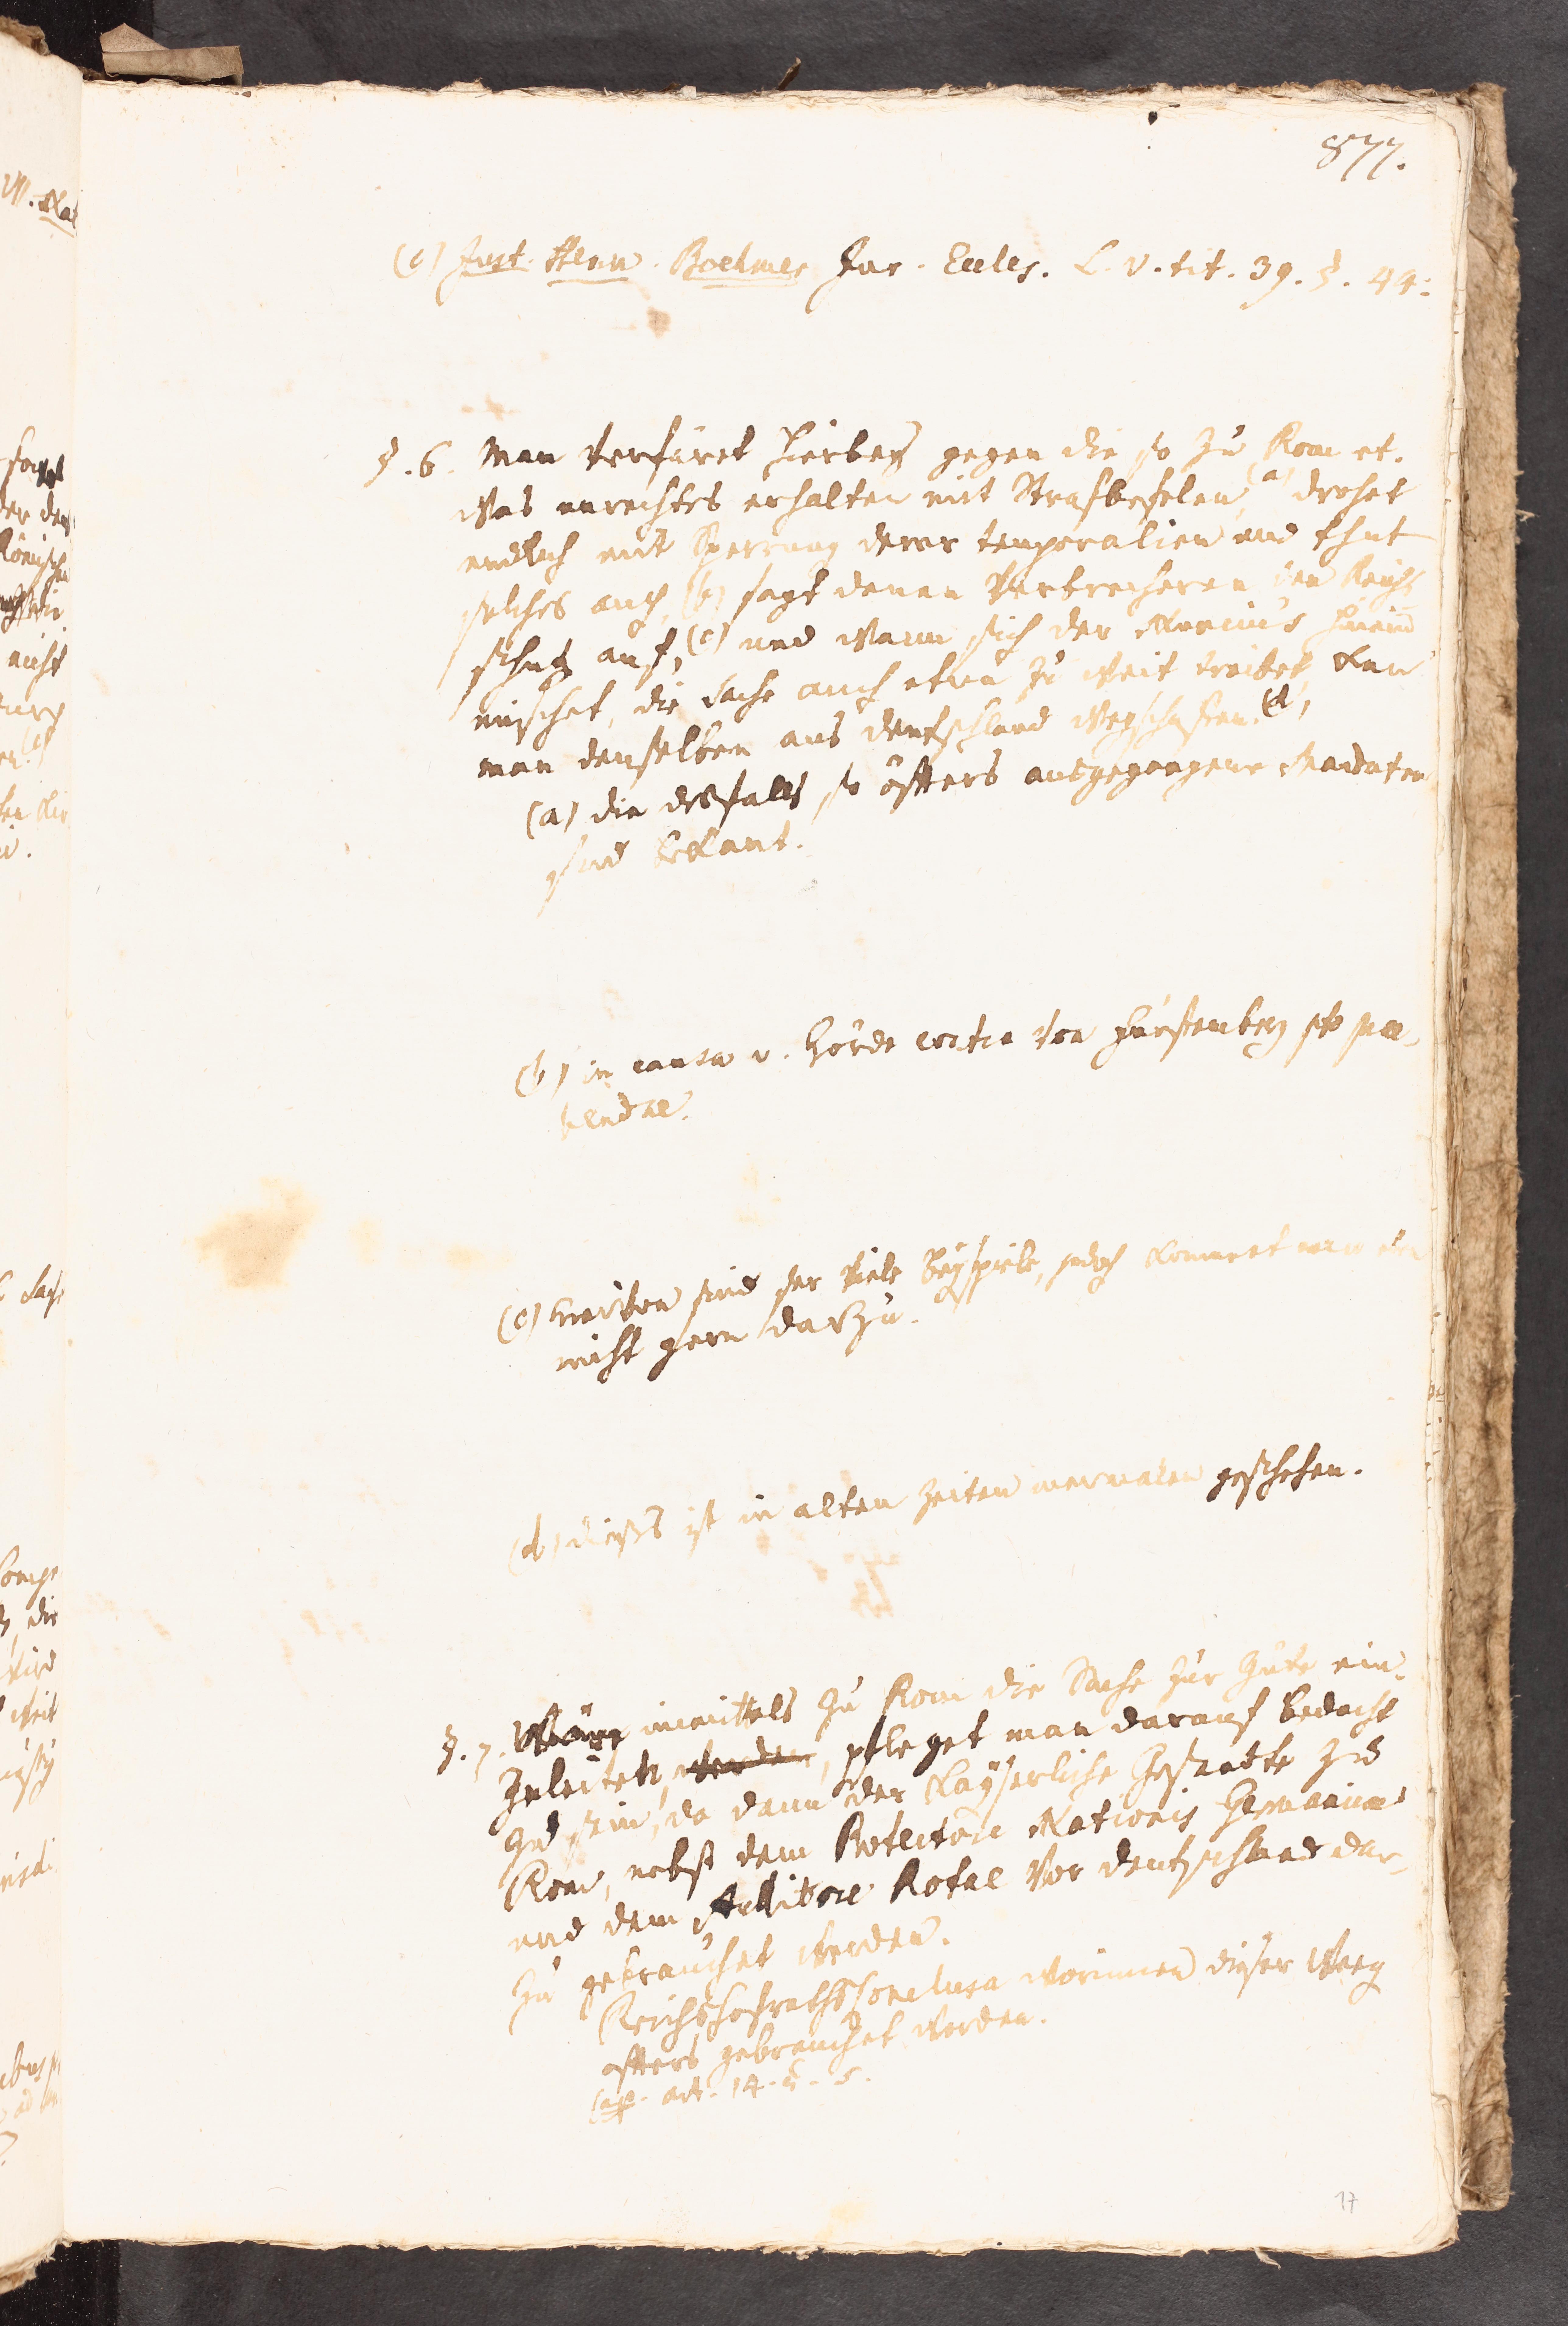 877.
(c) Just. Henn. Boehmer Jur. Eccles. L. V. tit. 39. §. 44.
§. 6. Man verfäret hierbey gegen die so zu Rom et-
was unrechtes erhalten mit Strafbefelen, (a) drohet
endlich mit Sperrung derer temporalien und thut
solches auch, (b) sagt denen Verbrecheren den Reichs
schutz auf, (c) und wann sich der Nuncius hierein
mischet, die Sache auch etwa zu weit treibet, kan
man denselben aus deutschland wegschaffen. (d)
(a) die desfalls so öffters ausgegangene Mandaten
sind bekant.
(b) in causa v. Hörde contra von Fürstenberg pto prae-
bendae.
(c) hierven sind ser viele Beyspiele, jedoch kommet man
nicht gern darzu.
(d) dieses ist in alten Zeiten mermalen geschehen.
§. 7. Wäre inmittels zu Rom die Sache zur Güte ein-
zuleiten, werden, pfleget man darauf bedacht
zu sein, da dann der Kayserliche Gesandte zu
Rom, nebst dem Protectore Nationis Germanicae
und dem Auditore Rotae vor deutschland dar-
zu gebrauchet werden.
Reichshofraths Conclusa worinnen dieser Weeg
öffters gebrauchet worden.
Cap. art. 14. §. 5.
17